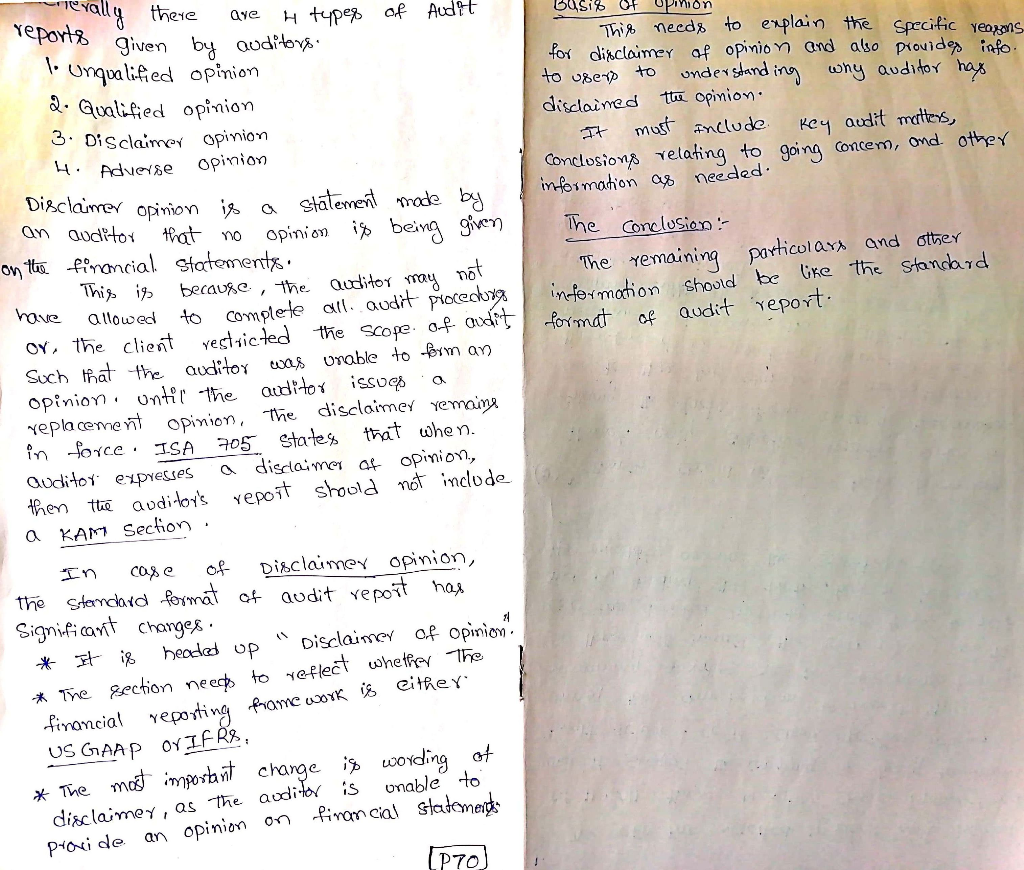 nerally there are 4 types of Audit
reports given by auditors.
1. Unqualified opinion
2. Qualified opinion
3. Disclaimer opinion
4. Adverse opinion
Disclaimer opinion is a statement made by
an auditor that no opinion is being given
on the financial statements.
This is because, the auditor may not
have allowed to complete all. audit procedures
or, the client restricted the scope of audit
Such that the auditor was unable to form an
opinion. until the auditor issues a
replacement opinion, The disclaimer remains
in force. ISA 705 States that when.
auditor expresses a disclaimer of opinion,
then the auditor's report should not include
a KAM Section.
In case of Disclaimer opinion,
the standard format of audit report has
Significant changes.
* It is headed up "Disclaimer of opinion".
* The section needs to reflect whether The
financial reporting frame work is either
US GAAP or IFRS.
* The most important change is wording of
disclaimer, as the auditor is unable to
provide an opinion on financial statements
P70
Basis of opinion
This needs to explain the specific reasons
for disclaimer of opinion and also provides info.
to users to understanding why auditor has
disclaimed the opinion.
It must include. Key audit matters,
Conclusions relating to going concern, and other
information as needed.
The Conclusion:-
The remaining particulars and other
information should be like the standard
format of audit report.